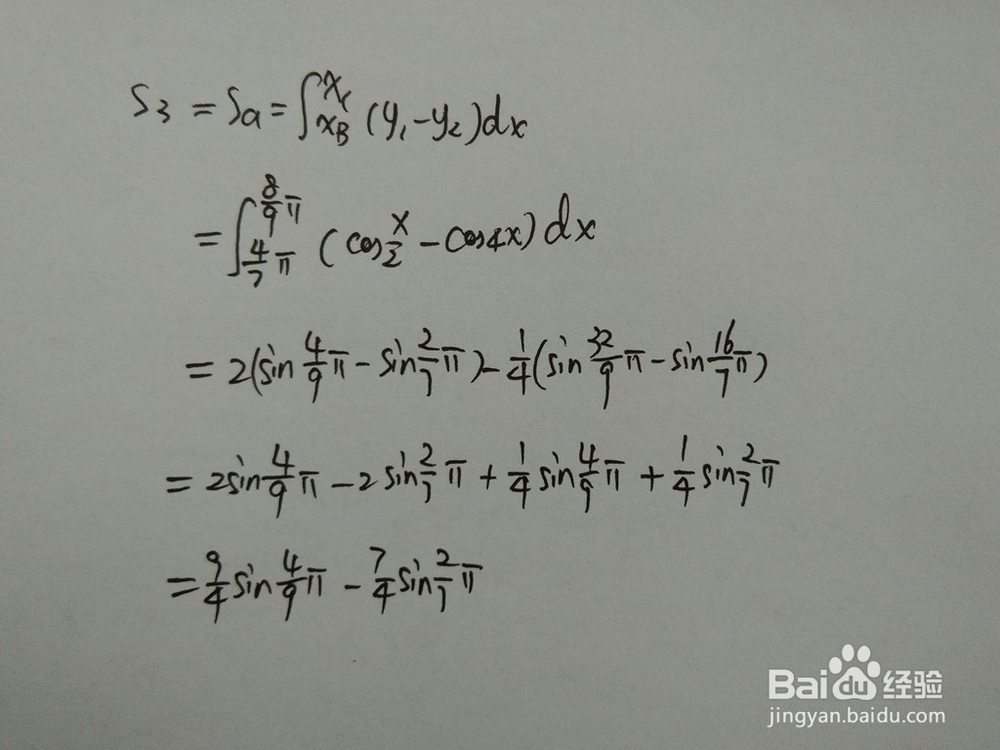 S₃ = Sa = ∫_{x_B}^{x_C} (y₁-y₂)dx
= ∫_{4/7 π}^{8/9 π} (cos x/2 - cos4x) dx
= 2(sin 4/9 π - sin 2/7 π) - 1/4 (sin 32/9 π - sin 16/7 π)
= 2sin 4/9 π - 2 sin 2/7 π + 1/4 sin 4/9 π + 1/4 sin 2/7 π
= 9/4 sin 4/9 π - 7/4 sin 2/7 π
Baidu经验
jingyan.baidu.com